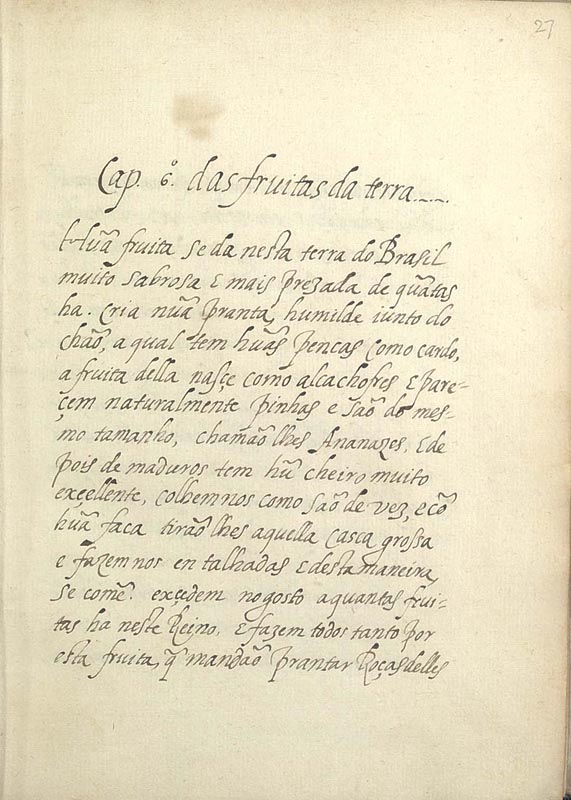 27
Cap. 6.º das fruitas da terra.~.~.
Hũa fruita se da nesta terra do Brasil
muito sabrosa e mais prezada de quãtas
ha. Cria nũa pranta humilde iunto do
chão, a qual tem hũas pencas como cardo,
a fruita della nasçe como alcachofres e pare-
çem naturalmente pinhas e são do mes-
mo tamanho, chamão lhes Ananazes, e de
pois de maduros tem hũ cheiro muito
excellente, colhemnos como são de vez, e cõ
hũa faca tirão lhes aquella casca grossa
e fazemnos en talhadas e desta maneira
se comẽ. exçedem no gosto a quantas frui-
tas ha neste Reino. e fazem todos tanto por
esta fruita, q̃ mandão prantar Roças delles